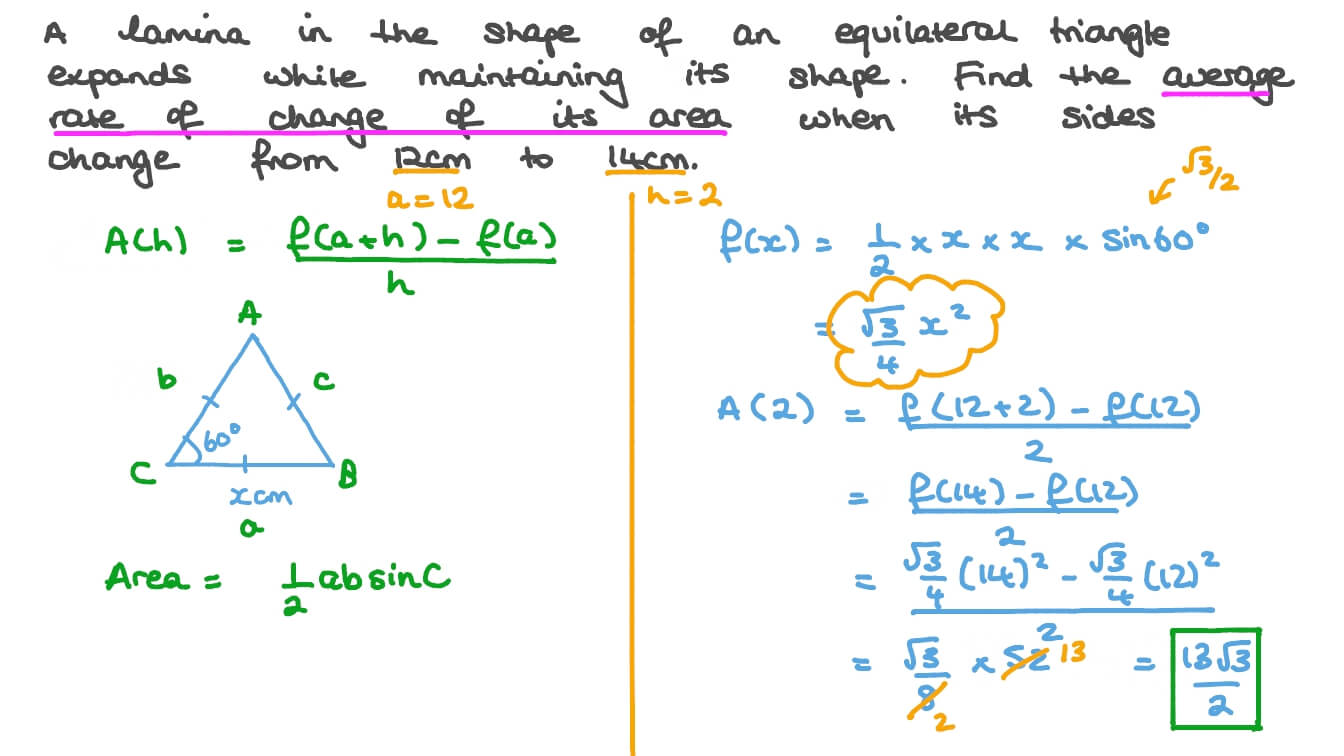 A lamina in the shape of an equilateral triangle
expands while maintaining its shape. Find the average
rate of change of its area when its sides
change from 12cm to 14cm.
a = 12
h = 2
A(h) = f(a+h) - f(a)
h
A
b
c
60°
C
B
x cm
a
Area = 1/2 ab sin C
√3/2
f(x) = 1/2 × x × x × sin60°
= √3/4 x²
A(2) = f(12+2) - f(12)
2
= f(14) - f(12)
2
= √3/4 (14)² - √3/4 (12)²
2
= √3/8 × 52 13 = 13√3/2
2